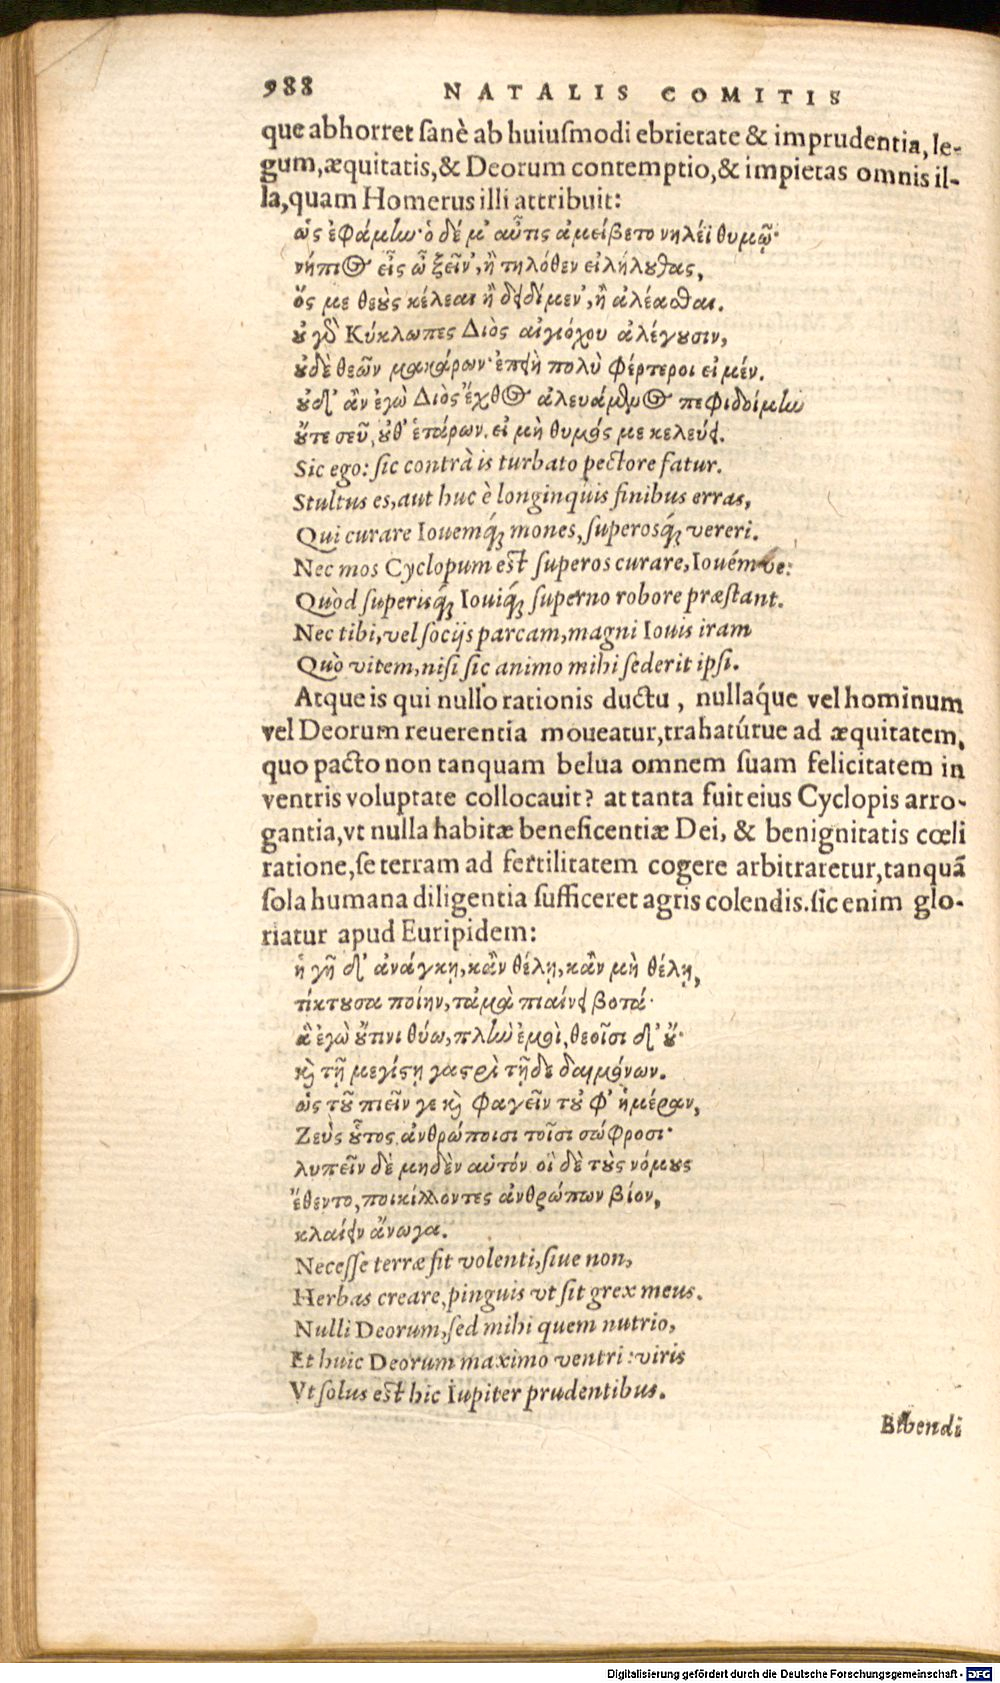 988 NATALIS COMITIS
que abhorret ſanè ab huiuſmodi ebrietate & imprudentia, le-
gum, æquitatis, & Deorum contemptio, & impietas omnis il-
la, quam Homerus illi attribuit:
ὡς ἐφάμίω· ὁ δέ μ’ αὖτις ἀμείβετο νηλέϊ θυμῷ·
νήπιος εἶς ὦ ξεῖν’, ἢ τηλόθεν εἰλήλουθας,
ὅς με θεοὺς κέλεαι ἢ δειδίμεν’, ἢ ἀλέασθαι.
οὐ γὸ Κύκλωπες Διὸς αἰγιόχου ἀλέγουσιν,
οὐδὲ θεῶν μακάρων· ἐπειὴ πολὺ φέρτεροι εἰμέν.
οὐδ’ ἂν ἐγὼ Διὸς ἔχθος ἀλευάμενος πεφιδοίμίω
οὔτε σεῦ, οὐθ’ ἑτάρων. εἰ μὴ θυμός με κελεύει.
Sic ego: ſic contrà is turbato pectore fatur.
Stultus es, aut huc è longinquis finibus erras,
Qui curare Iouemq́; mones, ſuperosq́; vereri.
Nec mos Cyclopum eſt ſuperos curare, Iouémve:
Quòd ſuperisq́; Iouiq́; ſuperno robore præſtant.
Nec tibi, vel ſocijs parcam, magni Iouis iram
Quò vitem, niſi ſic animo mihi ſederit ipſi.
Atque is qui nullo rationis ductu, nullaq́ue vel hominum
vel Deorum reuerentia moueatur, trahatúrue ad æquitatem,
quo pacto non tanquam belua omnem ſuam felicitatem in
ventris voluptate collocauit? at tanta fuit eius Cyclopis arro-
gantia, vt nulla habitæ beneficentiæ Dei, & benignitatis cœli
ratione, ſe terram ad fertilitatem cogere arbitraretur, tanquã
ſola humana diligentia ſufficeret agris colendis. ſic enim glo-
riatur apud Euripidem:
ἡ γῆ δ’ ἀνάγκῃ, κἂν θέλῃ, κἂν μὴ θέλῃ,
τίκτουσα ποίην, τἀμὰ πιαίνει βοτά·
ἃ ἐγὼ οὔτινι θύω, πλίω ἐμοὶ, θεοῖσι δ’ οὔ·
κỳ τῇ μεγίστῃ γαστρὶ τῇδε δαιμόνων.
ὡς τοῦ πιεῖν γε κỳ φαγεῖν τοὐφ’ ἡμέραν,
Ζεὺς οὗτος ἀνθρώποισι τοῖσι σώφροσι·
λυπεῖν δὲ μηδὲν αὑτόν οἳ δὲ τοὺς νόμους
ἔθεντο, ποικίλλοντες ἀνθρώπων βίον,
κλαίειν ἄνωγα.
Neceſſe terræ ſit volenti, ſiue non,
Herbas creare, pinguis vt ſit grex meus.
Nulli Deorum, ſed mihi quem nutrio,
Et huic Deorum maximo ventri: viris
Vt ſolus eſt hic Iupiter prudentibus.
Bibendi
Digitalisierung gefördert durch die Deutsche Forschungsgemeinschaft - DFG